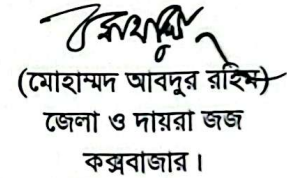 (মোহাম্মদ আবদুর রহিম)
জেলা ও দায়রা জজ
কক্সবাজার।